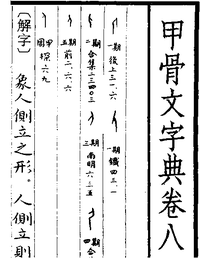 甲骨文字典卷八
一期後上三一.六
一期鐵四三.一
二期合集二三四〇三
三期南明
四期合
五期前
周甲探六九
〔解字〕象人側立之形。人側立則